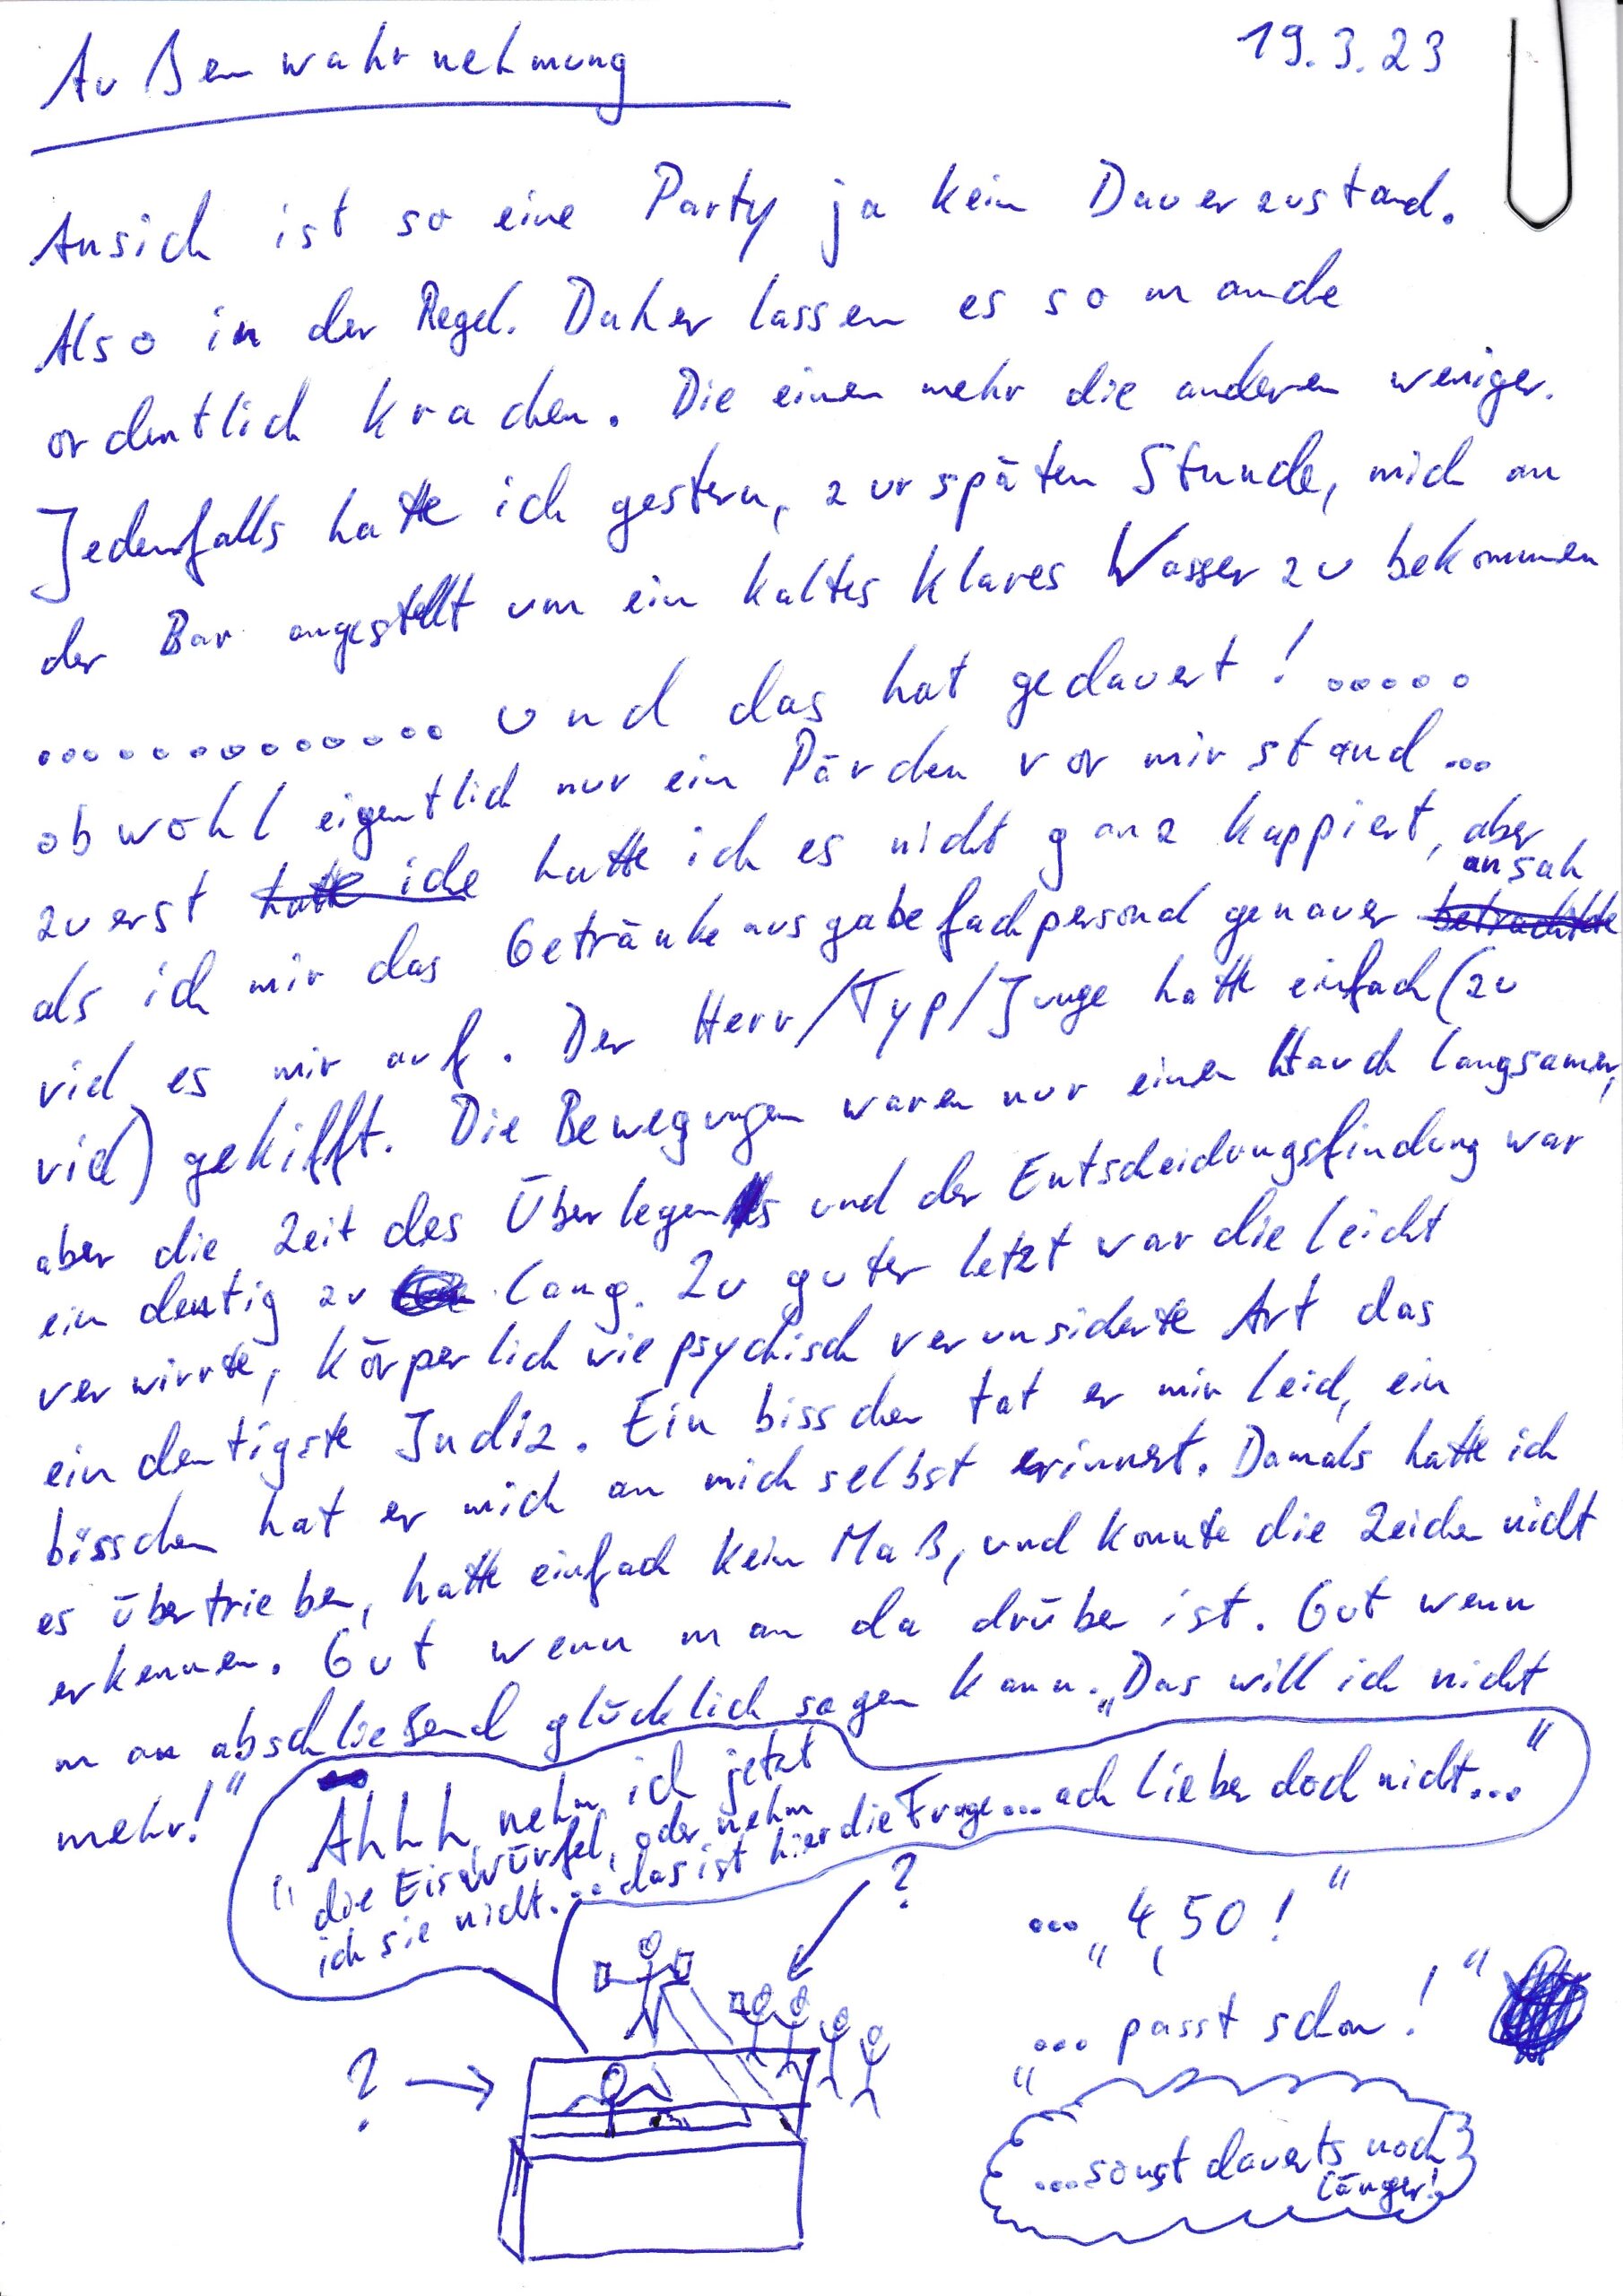 Außenwahrnehmung
19.3.23
Ansich ist so eine Party ja kein Dauerzustand.
Also in der Regel. Daher lassen es so manche
ordentlich krachen. Die einen mehr die anderen weniger.
Jedenfalls hatte ich gestern, zur späten Stunde, mich an
der Bar angestellt um ein kaltes klares Wasser zu bekommen
............. und das hat gedauert! .....
obwohl eigentlich nur ein Pärchen vor mir stand ...
zuerst hatte ich hatte ich es nicht ganz kappiert, aber
ansah
als ich mir das Getränkeausgabefachpersonal genauer betrachtete
viel es mir auf. Der Herr/Typ/Junge hatte einfach (zu
viel) gekifft. Die Bewegungen waren nur einen Hauch langsamer,
aber die Zeit des Überlegens und der Entscheidungsfindung war
eindeutig zu lang. Zu guter letzt war die leicht
verwirrte, körperlich wie psychisch verunsicherte Art das
eindeutigste Indiz. Ein bisschen tat er mir leid, ein
bisschen hat er mich an mich selbst erinnert. Damals hatte ich
es übertrieben, hatte einfach kein Maß, und konnte die Zeichen nicht
erkennen. Gut wenn man da drüber ist. Gut wenn
man abschließend glücklich sagen kann. „Das will ich nicht
mehr!"
„Ähhh nehm ich jetzt
die Eiswürfel, oder nehm
ich sie nicht... das ist hier die Frage... ach lieber doch nicht..."
?
... „4,50!"
„... passt schon!"
?
...sonst dauerts noch
länger!